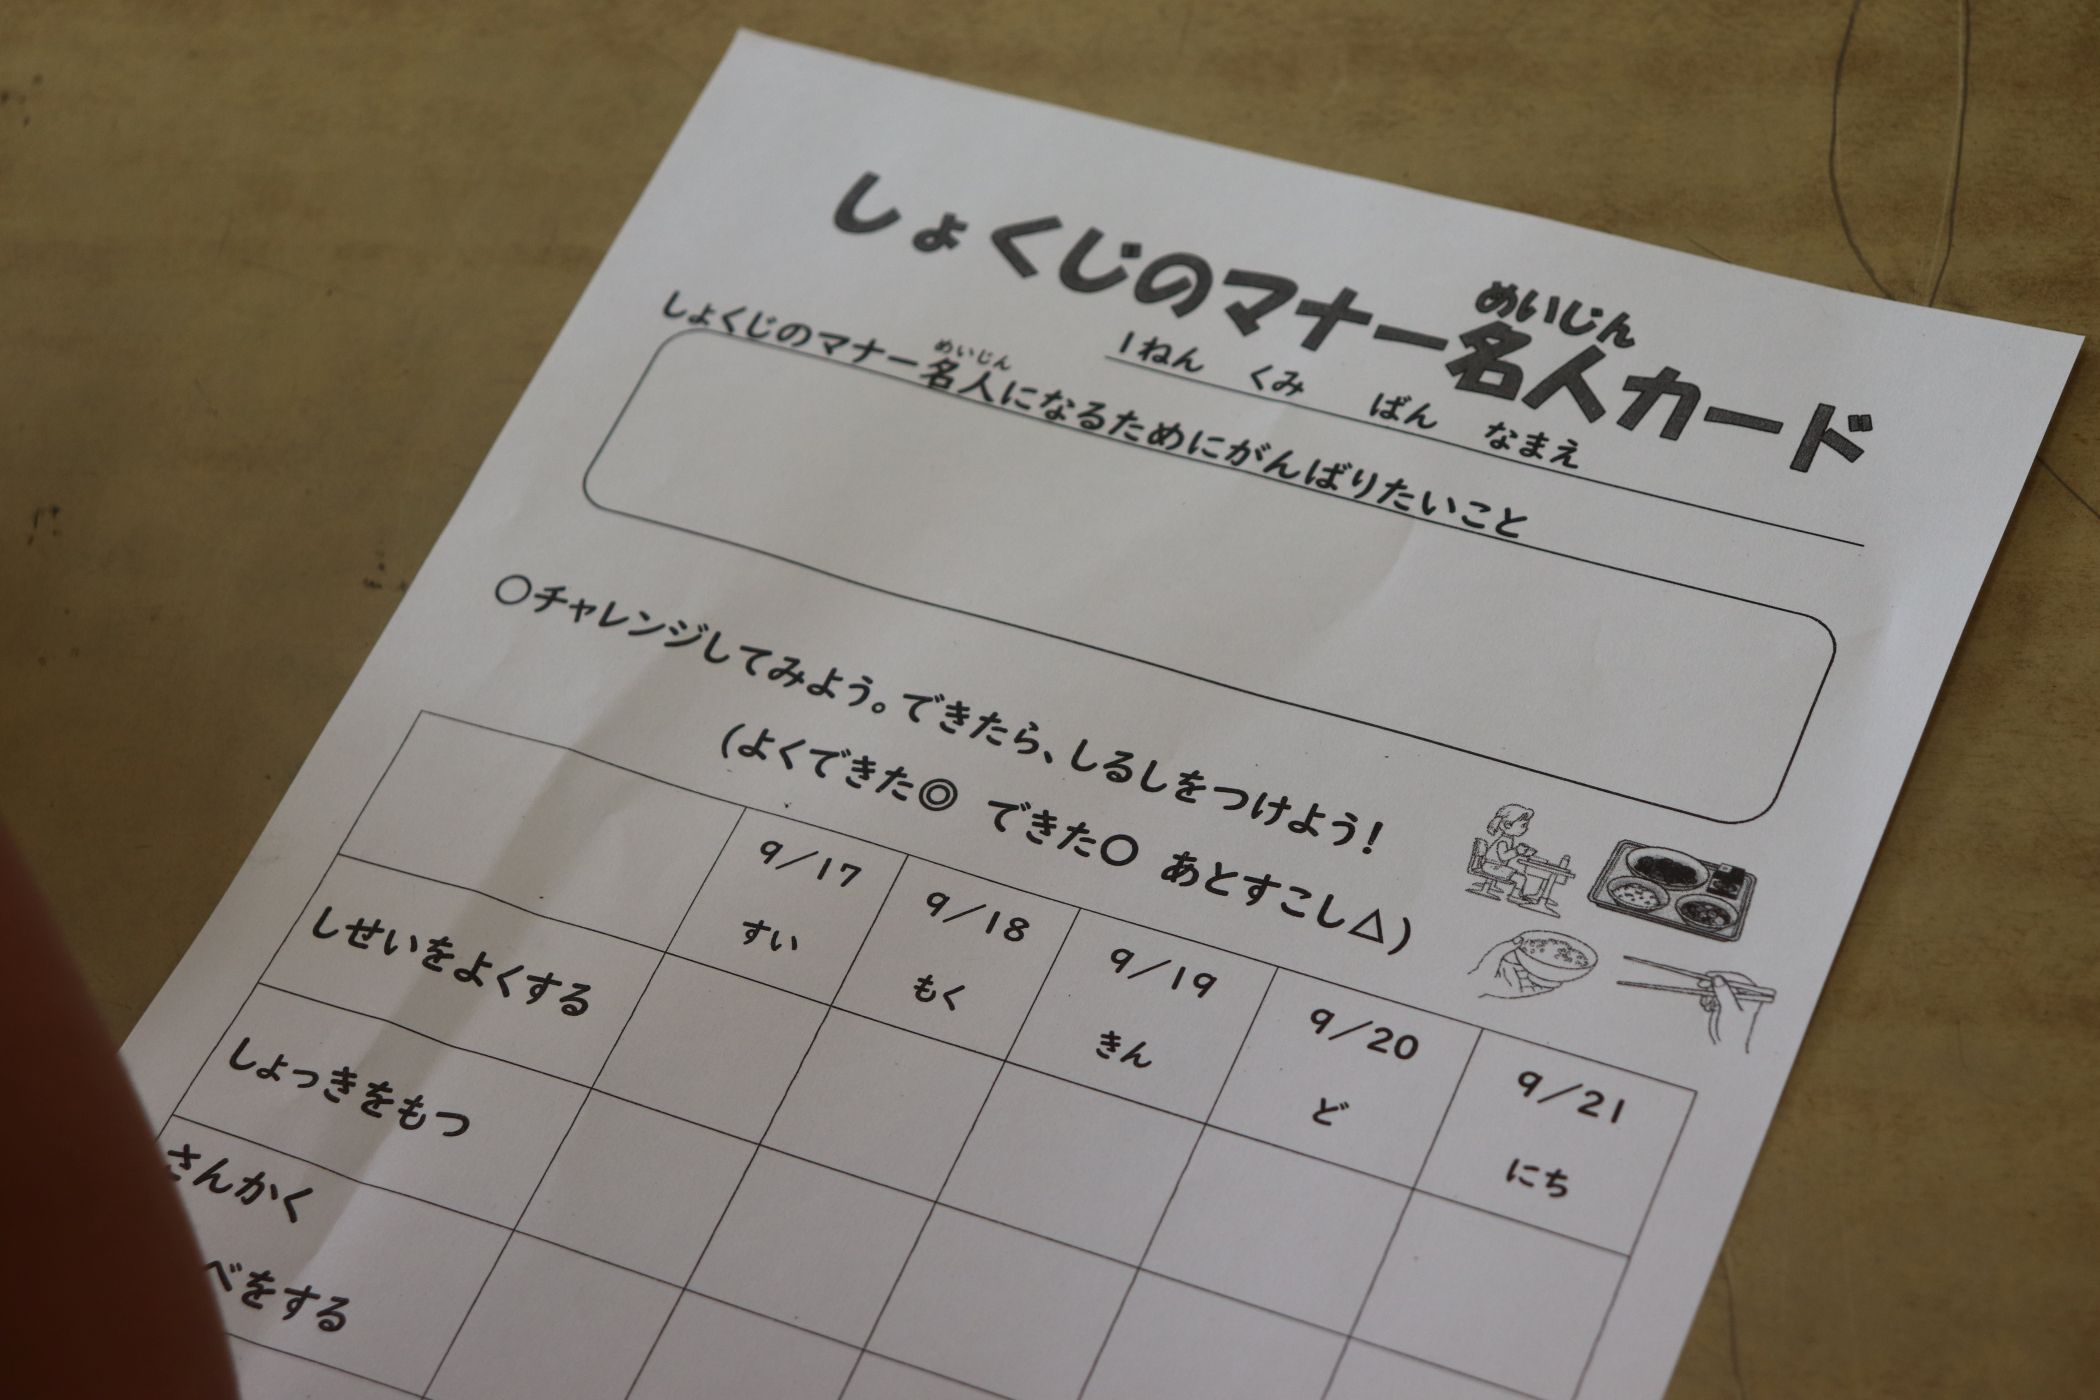 しょくじのマナー名人カード
めいじん
1ねん くみ ばん なまえ
しょくじのマナー名人になるためにがんばりたいこと
めいじん
○チャレンジしてみよう。できたら、しるしをつけよう！
(よくできた◎ できた○ あとすこし△)
9/17 9/18 9/19 9/20 9/21
すい もく きん ど にち
しせいをよくする
しょっきをもつ
さんかく
べをする